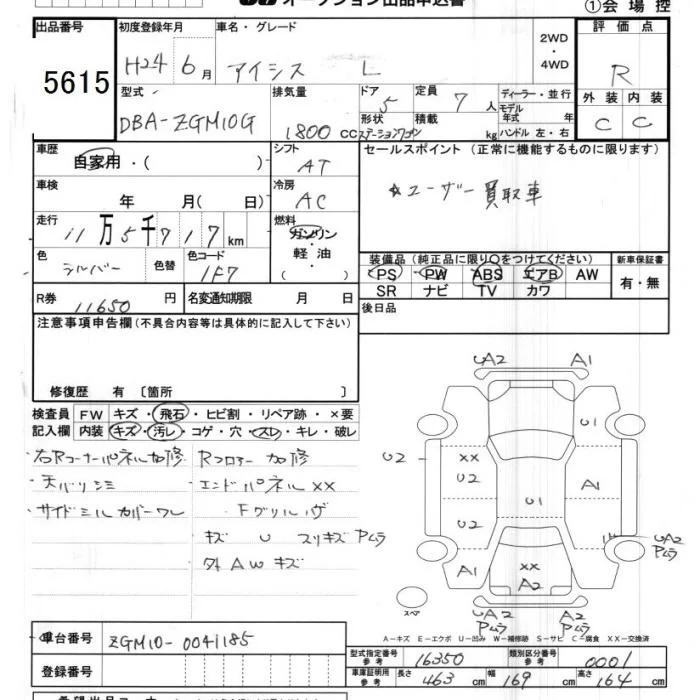 オークション出品申込書 ①会場控
出品番号 初度登録年月 車名・グレード 2WD・4WD 評価点
5615 H24 6月 アイシス L R
型式 排気量 ドア 定員 ディーラー・並行 外装 内装
DBA-ZGM10G 1800 CC 5 7人 モデル年式 年 C C
形状 積載 ステーションワゴン kg ハンドル 左・右
車歴 自家用・( ) シフト AT セールスポイント (正常に機能するものに限ります)
車検 年 月( 日) 冷房 AC ☆ユーザー買取車
走行 11万5千717km 燃料 ガソリン・軽油・( )
色 シルバー 色替 色コード 1F7
装備品 (純正品に限り○をつけてください) 新車保証書
PS PW ABS エアB AW 有・無
SR ナビ TV カワ
R券 11650円 名変通知期限 月 日 後日品
注意事項申告欄 (不具合内容等は具体的に記入して下さい)
修復歴 有 〔箇所 〕
検査員 FW キズ・飛石・ヒビ割・リペア跡・×要
記入欄 内装 キズ・汚レ・コゲ・穴・スレ・キレ・破レ
右Rコーナーパネル加修 Rフロアー加修
天バリシミ エンドパネルXX
サイドミルカバーワレ Fグリルハゲ
キズ U スリキズ Pムラ
外AWキズ
UA2 A1
U1
U2 XX
U2 A1
U1
U2
UA2
Pムラ
A1 XX
A2
スペア UA2 A2
Pムラ Pムラ
A-キズ E-エクボ U-凹み W-補修跡 S-サビ C-腐食 XX-交換済
車台番号 ZGM10-0041185
型式指定番号 参考 16350 類別区分番号 参考 0001
登録番号
車庫証明用 参考 長さ 463cm 幅 169cm 高さ 164cm